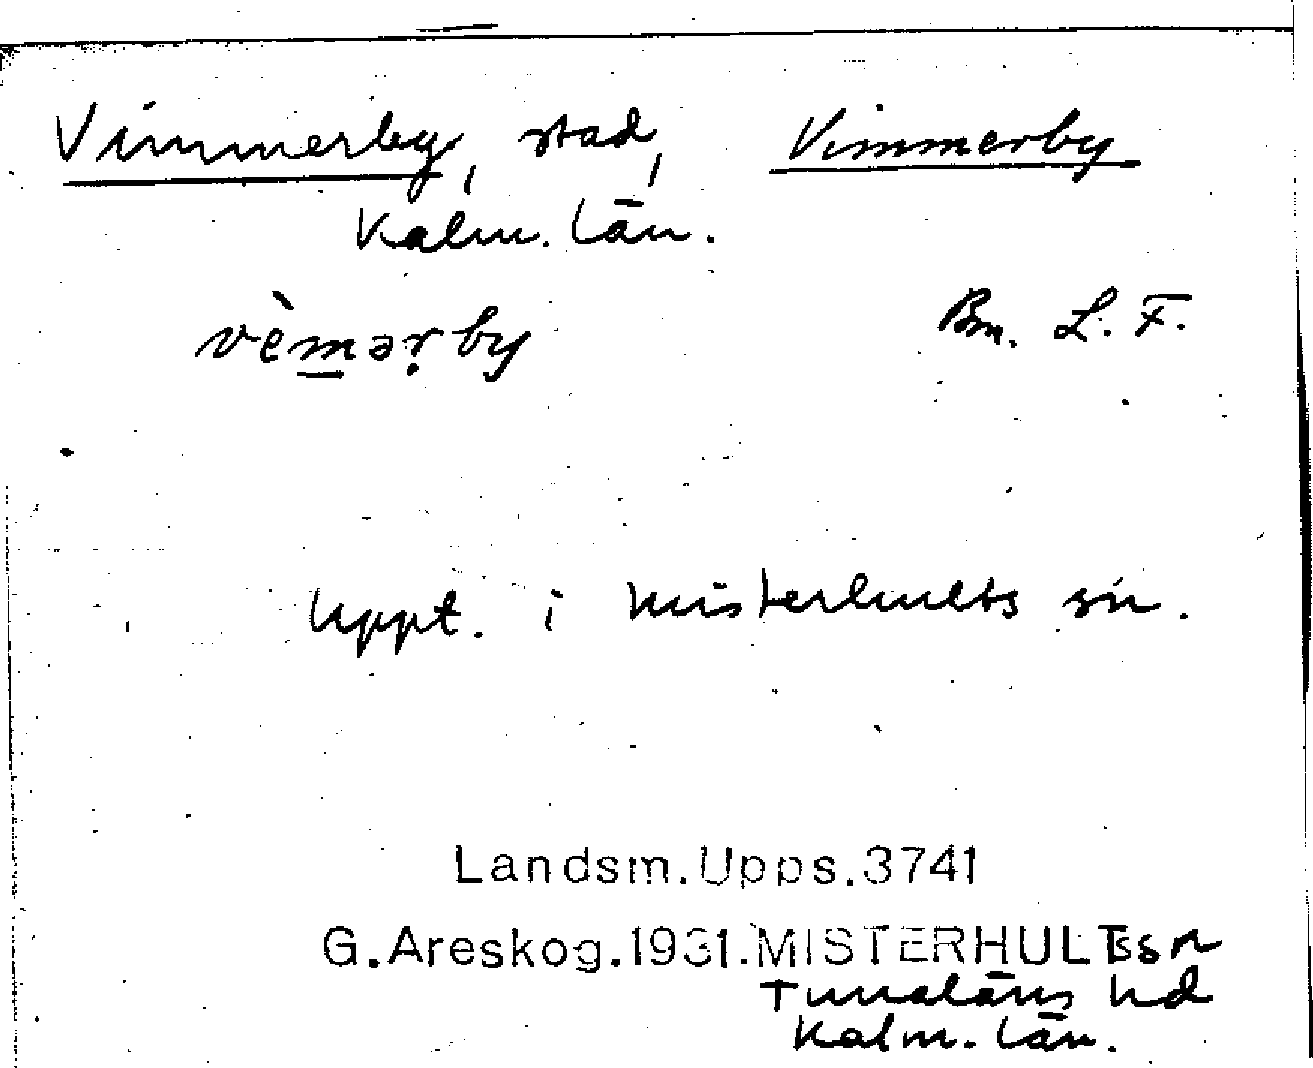 Vimmerby, stad, Vimmerby
Kalm. län.
vèmərby Bm. L. F.
Uppt. i Misterhults sn.
Landsm.Upps.3741
G.Areskog.1931.MISTERHULTs sn
Tunaläns hd
Kalm. län.